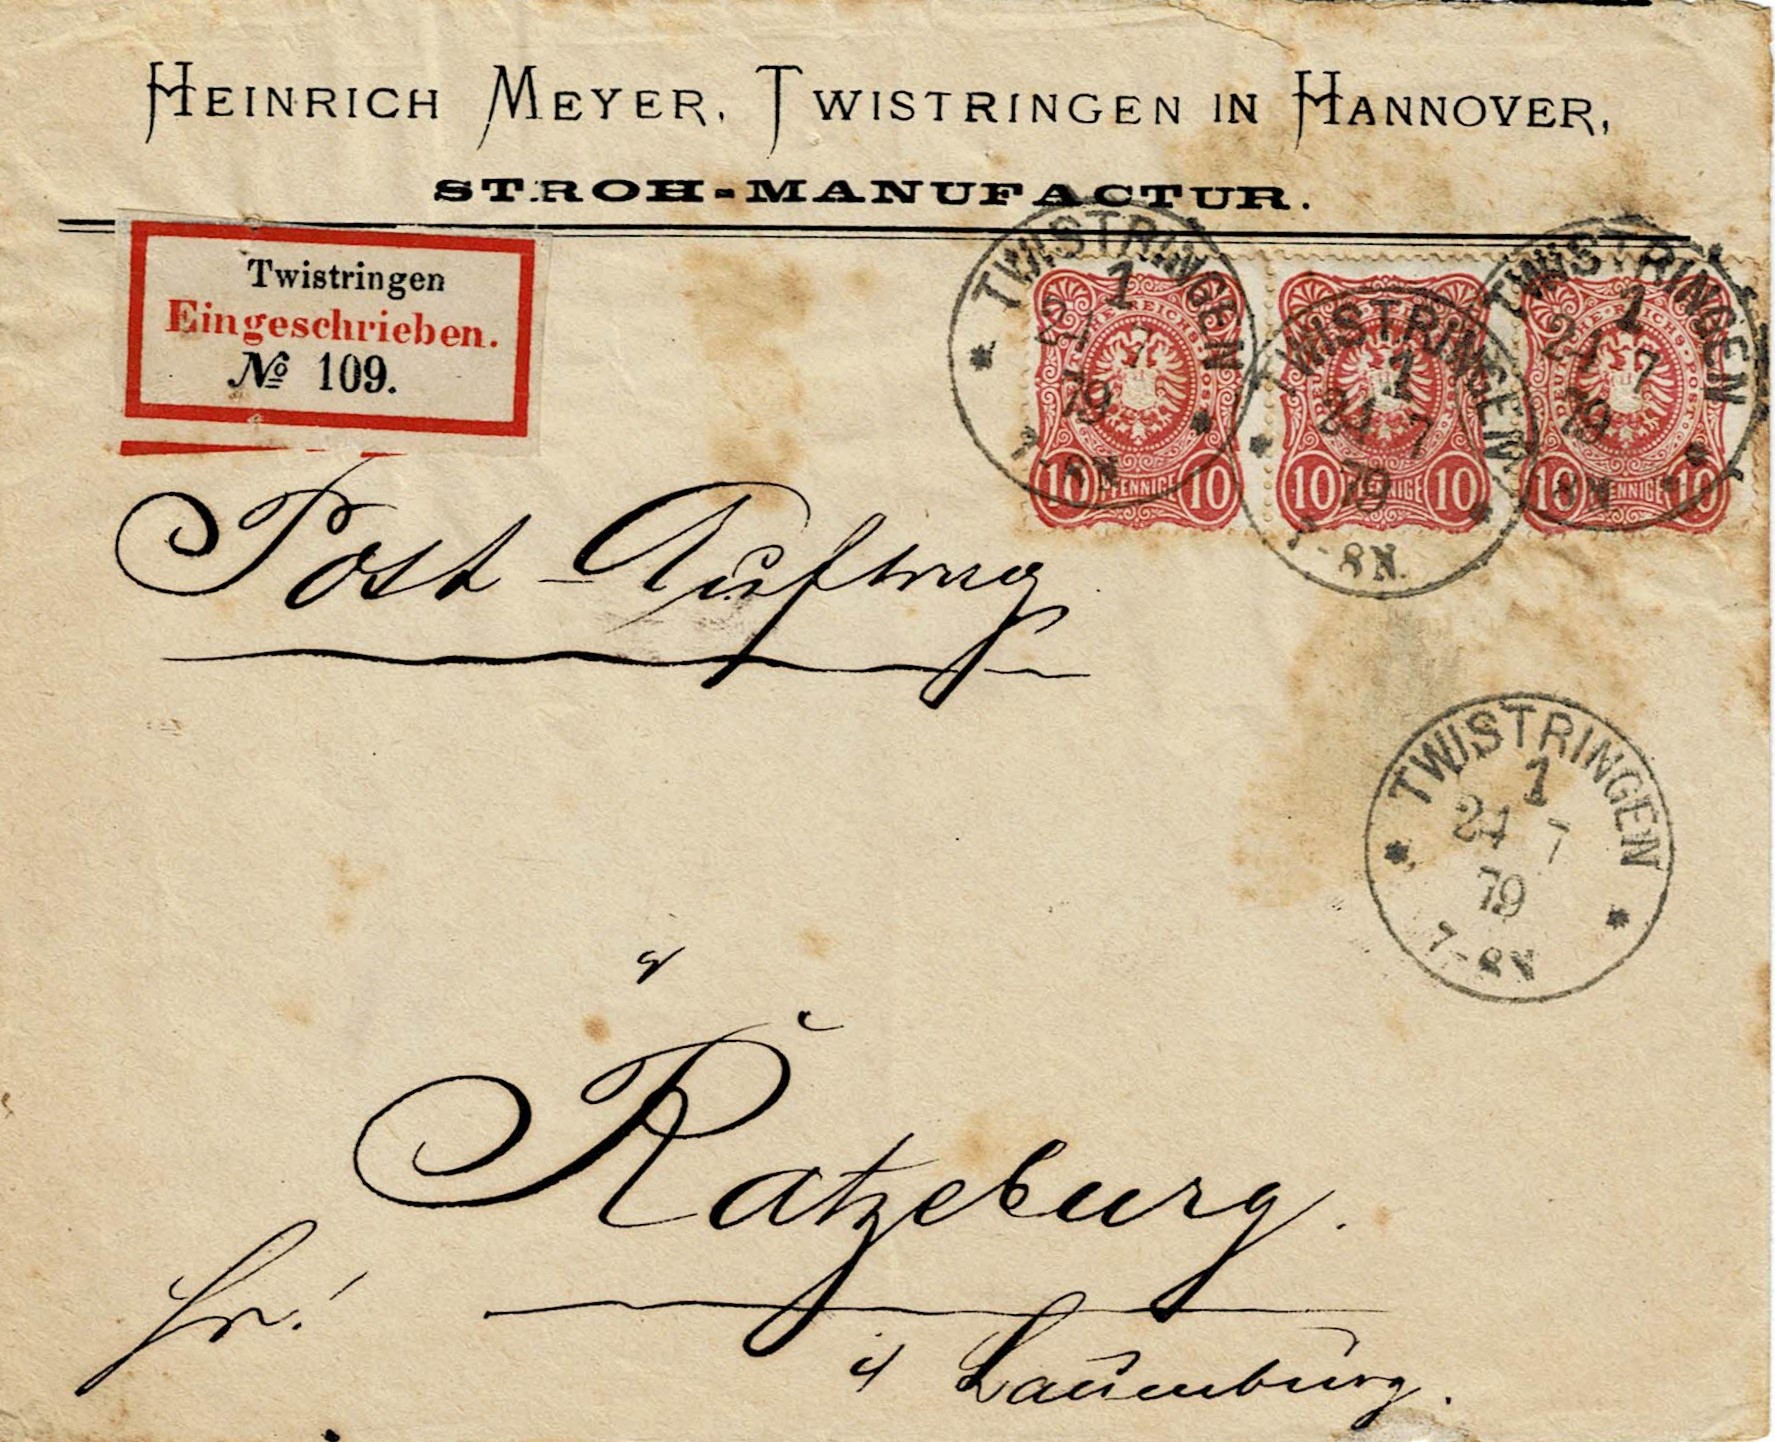 HEINRICH MEYER, TWISTRINGEN IN HANNOVER,
STROH-MANUFACTUR.
Twistringen
Eingeschrieben.
No 109.
TWISTRINGEN
1
24 7
79
7-8N
DEUTSCHE REICHS-POST
10 PFENNIGE 10
TWISTRINGEN
1
24 7
79
7-8N.
10 PFENNIGE 10
TWISTRINGEN
1
24 7
79
8N
DEUTSCHE REICHS-POST
10 PFENNIGE 10
Post-Auftrag
TWISTRINGEN
1
24 7
79
7-8N
Ratzeburg.
fr!
Lauenburg.